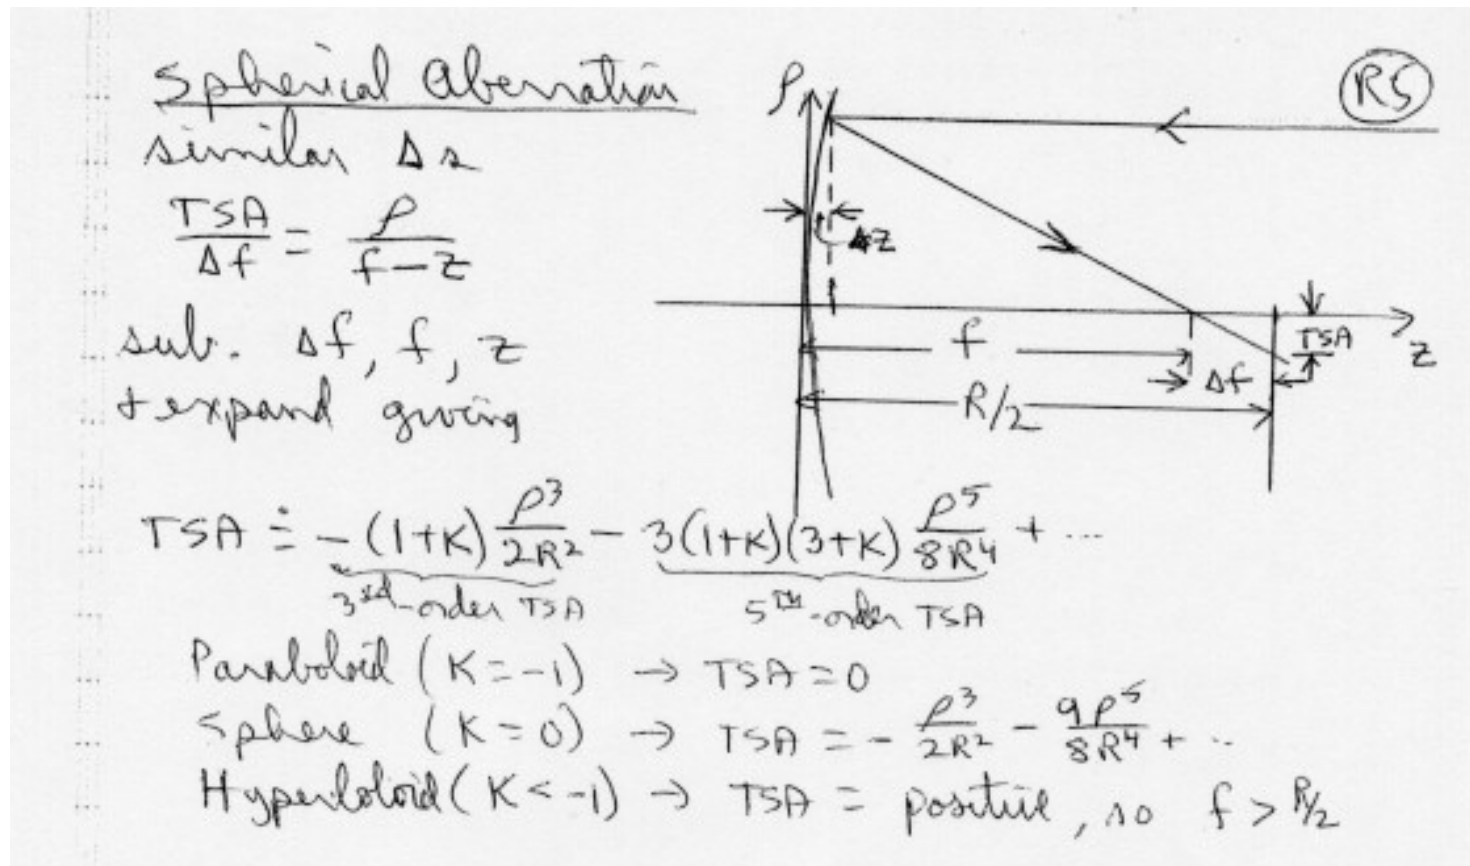 Spherical Aberration
similar Δs
TSA/Δf = ρ/(f-z)
sub. Δf, f, z
+ expand giving
ρ
RS
ΔZ
f
TSA
z
Δf
R/2
TSA ≐ -(1+K) ρ³/2R² - 3(1+K)(3+K) ρ⁵/8R⁴ + ...
3rd-order TSA
5TH-order TSA
Paraboloid (K=-1) → TSA=0
Sphere (K=0) → TSA = - ρ³/2R² - 9ρ⁵/8R⁴ + ..
Hyperboloid (K<-1) → TSA = positive, so f > R/2